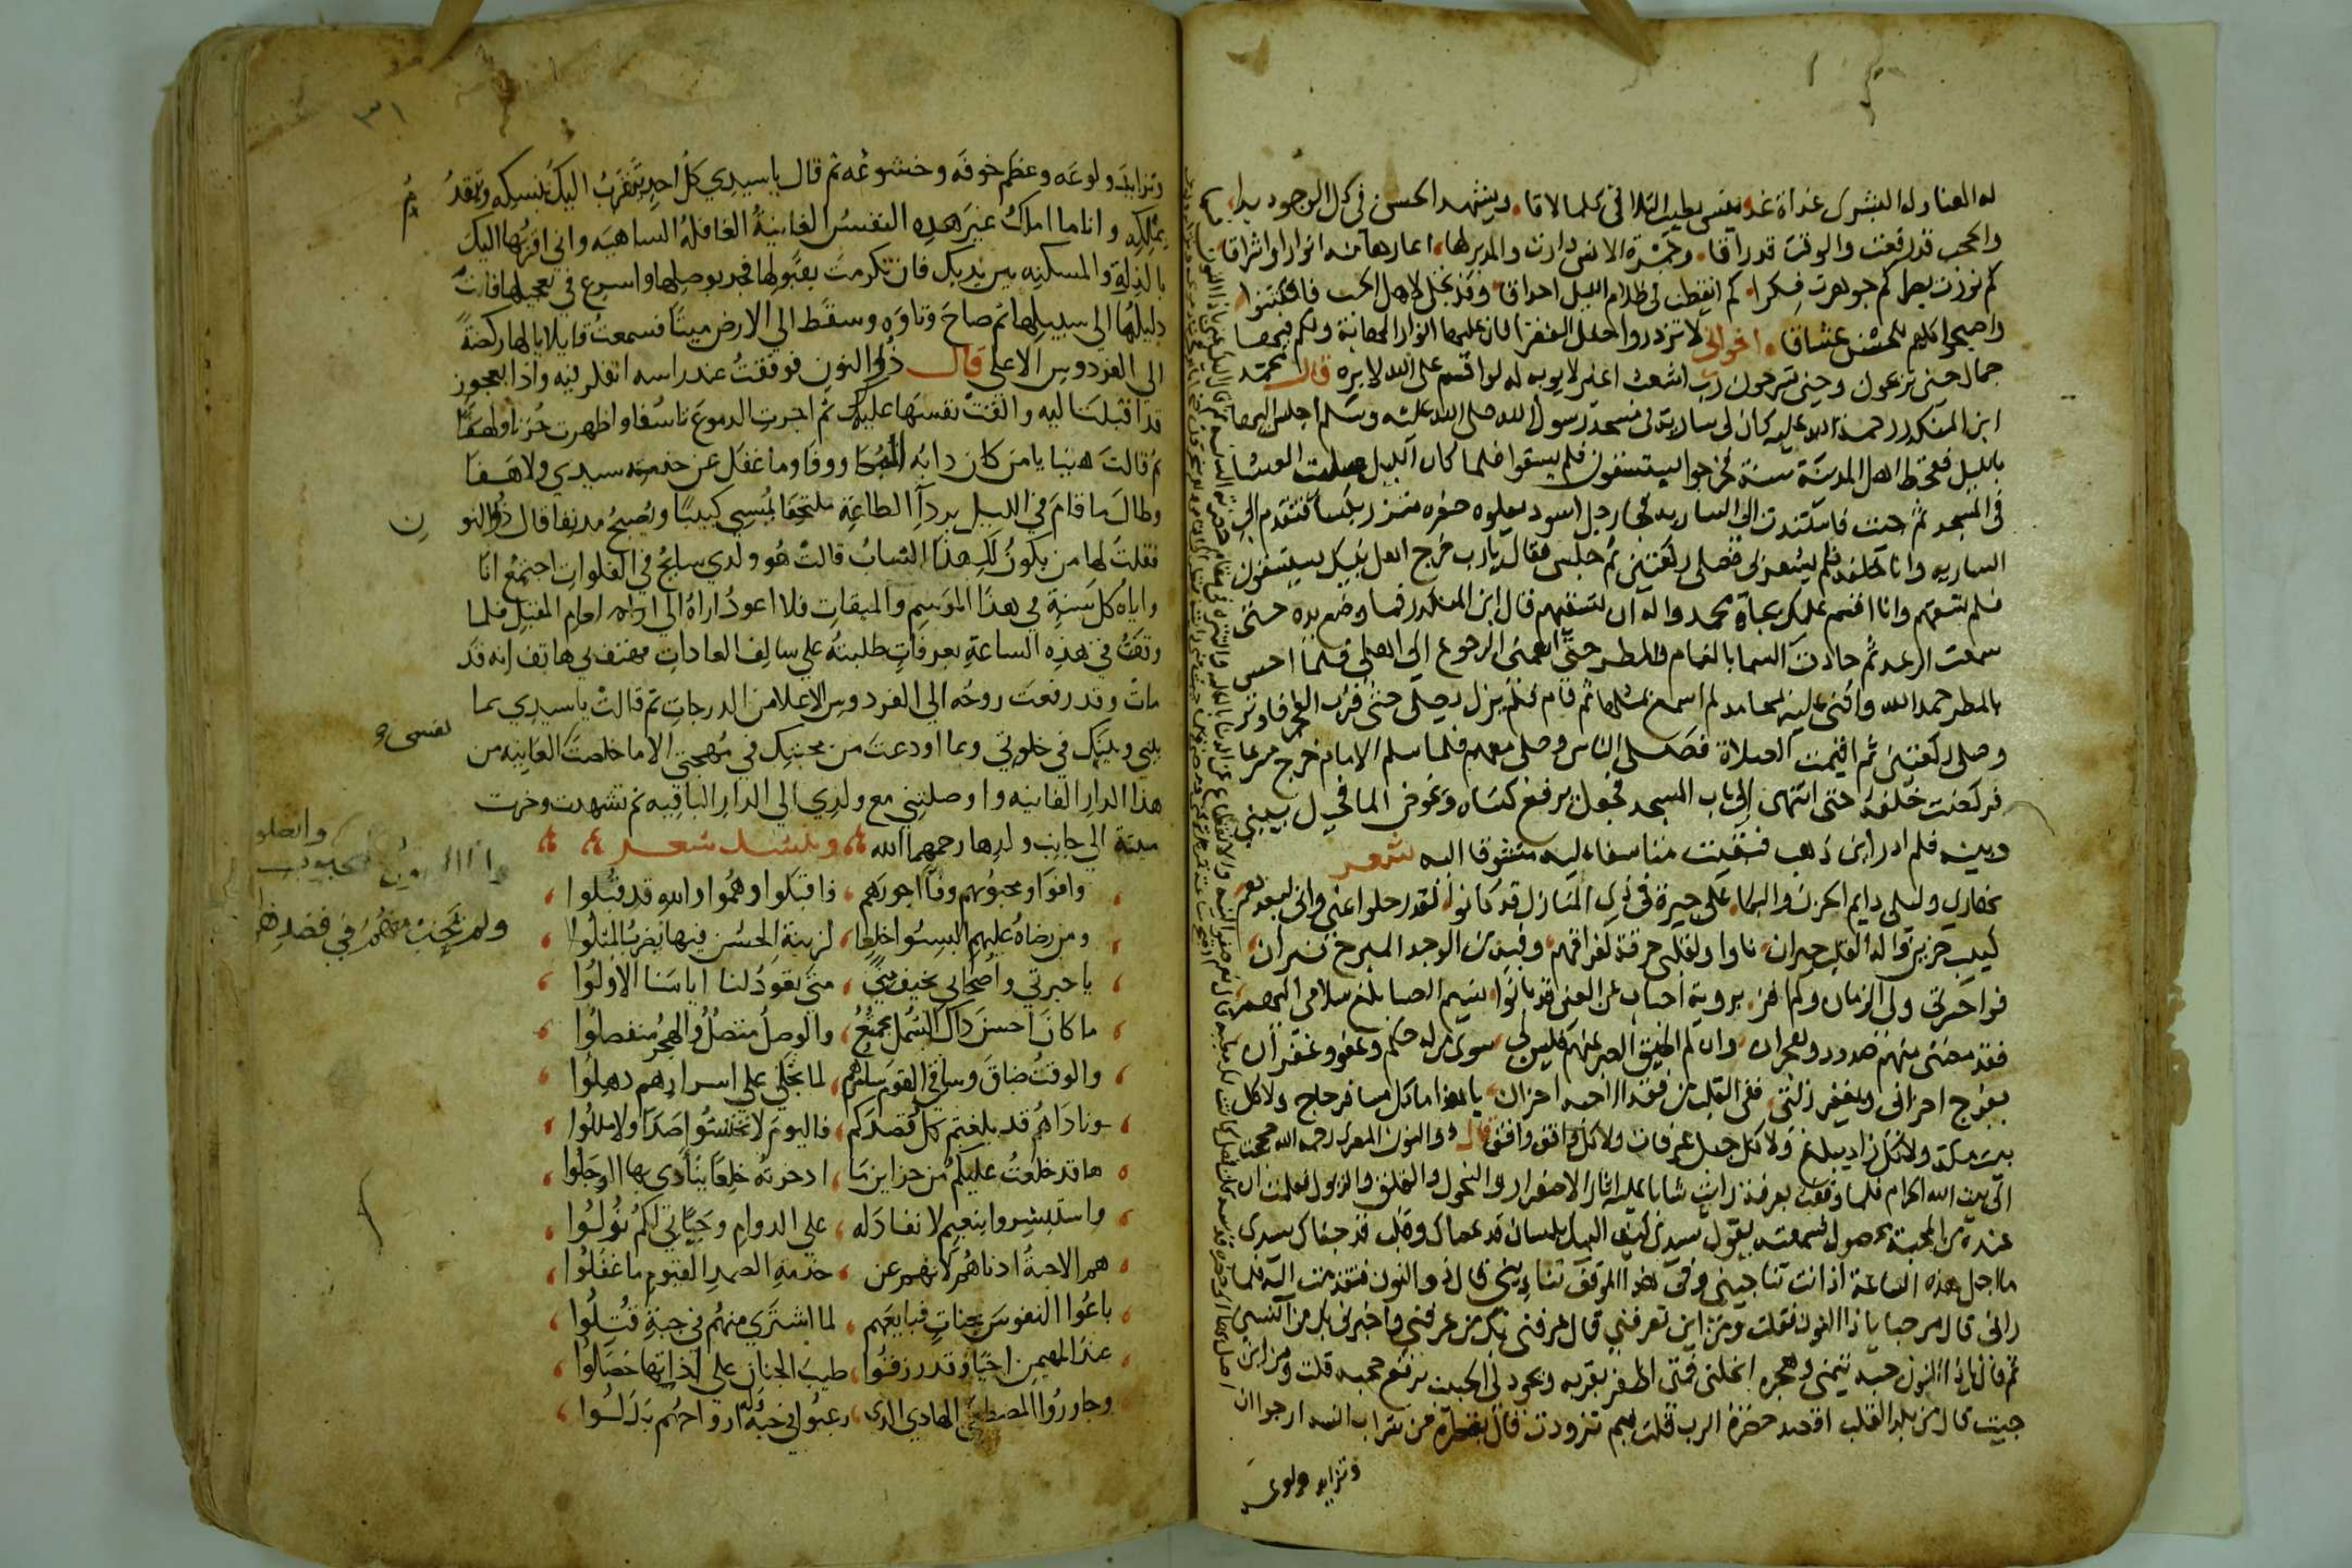 له الهنا وله البشرى غداة غد يمسي بطيب التلاقي كلما لاقا ويشهد الحسن في كل الوجود بدا
والحجب قد رفعت والوقت قد راقا وخمرة الانس دارت والمدير لها اعارها منه انوارا واشراقا
كم نورت بصرا كم جوهرت فكرا كم ايقظت في ظلام الليل احداق وقد تجلى لاهل الحب فافتتنوا
واصبحوا كلهم للحسن عشاقا اخواني لا تزدروا حلل الفقرا فان عليها انوار المهابة ولكم فيها
جمال حين تريحون وحين تسرحون رب اشعث اغبر لا يوبه له لو اقسم على الله لابره قال محمد
ابن المنكدر رحمة الله عليه كان لي سارية في مسجد رسول الله صلى الله عليه وسلم اجلس اليها
بالليل فقحط اهل المدينة سنة فخرجوا يستسقون فلم يسقوا فلما كان الليل صليت العشا
في المسجد ثم جيت فاستندت الى السارية فجا رجل اسود يعلوه صفره متزر بكسا فتقدم الى
الساريه وانا خلفه فلم يشعر بي فصلى ركعتين ثم جلس فقال يارب خرج اهل بيتك يستسقون
فلم تسقهم وانا اقسم عليك بجاه محمد واله ان تسقيهم قال ابن المنكدر فما وضع يده حتى
سمعت الرعد ثم جادت السما بالغمام والمطر حتى اهمني الرجوع الى اهلي فلما احس
بالمطر حمد الله واثنى عليه بمحامد لم اسمع بمثلها ثم قام فلم يزل يصلي حتى قرب الفجر فاوتر
وصلى ركعتين ثم اقيمت الصلاة فصلى الناس وصلى معهم فلما سلم الامام خرج مسرعا
فركضت خلفه حتى انتهى الى باب المسجد فجعل يرفع كساه ويخوض الما فحيل بيني
وبينه فلم ادر اين ذهب فبقيت متاسفا عليه متشوقا اليه شعر
نهاري وليلي دايم الحزن والبكا على جيرة في ذي المنازل قد كانوا لقد رحلوا عني واني لبعدهم
كييب حزين واله القلب حيران ناوا ولقلبي حرقة لفراقهم وفيه من الوجد المبرح نيران
فواحسرتي ولى الزمان وكم افز بروية احباب عن العين قد بانوا نسيم الصبا بلغ سلامي اليهم
فقد مضني منهم صدود وهجران وان لم اطيق الصبر عنهم فليس لي سوى من له حلم وعفو وغفران
يفرج احزاني ويغفر زلتي ففي القلب من فقد الاحبه احزان يا هذا ما كل مسافر حاج ولا كل
بيت مكة ولا كل زاد يبلغ ولا كل جبل عرفات ولا كل واقف وافق قال ذو النون المصري رحمه الله حججت
الى بيت الله الحرام فلما وقفت بعرفة رايت شابا عليه اثار الاصفرار والنحول والقلق والذبول فعلمت ان
عنده من المحبة محصول فسمعته يقول سيدي كيف اليك بلسان قد عصاك وقلب قد جفاك سيدي
ما اجل هذه الساعة اذ انت تناجيني وفي هذا الموقف تناديني قال ذو النون فتقدمت اليه فلما
راني قال مرحبا يا ذا النون فقلت ومن اين تعرفني قال عرفني بك من عرفني واخبرني بك من انسبني
ثم قال يا ذا النون حبه تيمني وهجره انحلني فمتى اظفر بقربه ويجود لي الحبيب برفع حجبه قلت ومن اين
جيت قال من بلد القلب اقصد حضرة الرب قلت فبم تزودت قال بقطرة من شراب انسه ارجوا ان
وتزايد ولوعه
٣١
وتزايد ولوعه وعظم خوفه وخشوعه ثم قال يا سيدي كل احد يتقرب اليك بنسكه ويتقدم
بملكه وانا ما املك غير هذه النفس الفانية الغافلة الساهيه واني اقربها اليك
بالذلة والمسكنه بين يديك فان تكرمت بقبولها فجد بوصلها واسرع في تعجيلها فانت
دليلها الى سبيلها ثم صاح وتاوه وسقط الى الارض ميتا فسمعت قايلا يا لها ركضة
الى الفردوس الاعلى قال ذو النون فوقفت عند راسه اتفكر فيه واذا بعجوز
قد اقبلت اليه والقت نفسها عليه ثم اجرت الدموع تاسفا واظهرت حزنا ولهفا
ثم قالت هنيا يا من كان دابه البكا ووفا وما غفل عن خدمة سيدي ولا هفا
وطال ما قام في الليل بردآ الطاعة ملتحفا يمسي كييبا ويصبح مدنفا قال ذو النون
فقلت لها من يكون لك هذا الشاب قالت هو ولدي سايح في الفلوات اجتمع انا
واياه كل سنة في هذا الموسم والميقات فلا اعود اراه الى اوان العام المقبل فلما
وقفت في هذه الساعة بعرفات طلبته على سالف العادات فهتف بي هاتف انه قد
مات وقد رفعت روحه الى الفردوس الاعلا من الدرجات ثم قالت يا سيدي بما
بيني وبينك في خلوتي وبما اودعت من محبتك في مهجتي الا ما خلصت نفسي الفانيه من
هذا الدار الفانيه واوصلتني مع ولدي الى الدار الباقيه ثم تشهدت وخرت
ميتة الى جانب ولدها رحمهما الله وينشد شعر
وافوا ومحبوبهم وفا اجورهم ذا قبلوا وهموا والله قد قبلوا
ومن رضاه عليهم البسوا خلعا لزينة الحسن فيها يضرب المثلوا
يا حيرتي واصحابي بخيف منى متى تعود لنا ايامنا الاولوا
ما كان احسن ذاك الشمل مجتمع والوصل متصل والهجر منفصلوا
والوقت ضاق وساقي القوم سامرهم لما تجلى على اسرارهم ذهلوا
وناداهم قد بلغتم كل قصدكم فاليوم لا تختشوا صدا ولا مللوا
ها قد خلعت عليكم من خزايننا ادخرته خلعا ينادى بها الرجلوا
واستبشروا بنعيم لا نفاد له على الدوام وجناتي لكم نزلوا
هم الاحبة ادناهم لانهم عن خدمة الصمد القيوم ما غفلوا
باعوا النفوس بجنات فبايعهم لما اشترى منهم في حبة قتلوا
عند المهيمن احيا وقد رزقوا طيب الجنان على لذاتها حصلوا
وجاوروا المصطفى الهادي الذي رغبوا في حبه وله ارواحهم بذلوا